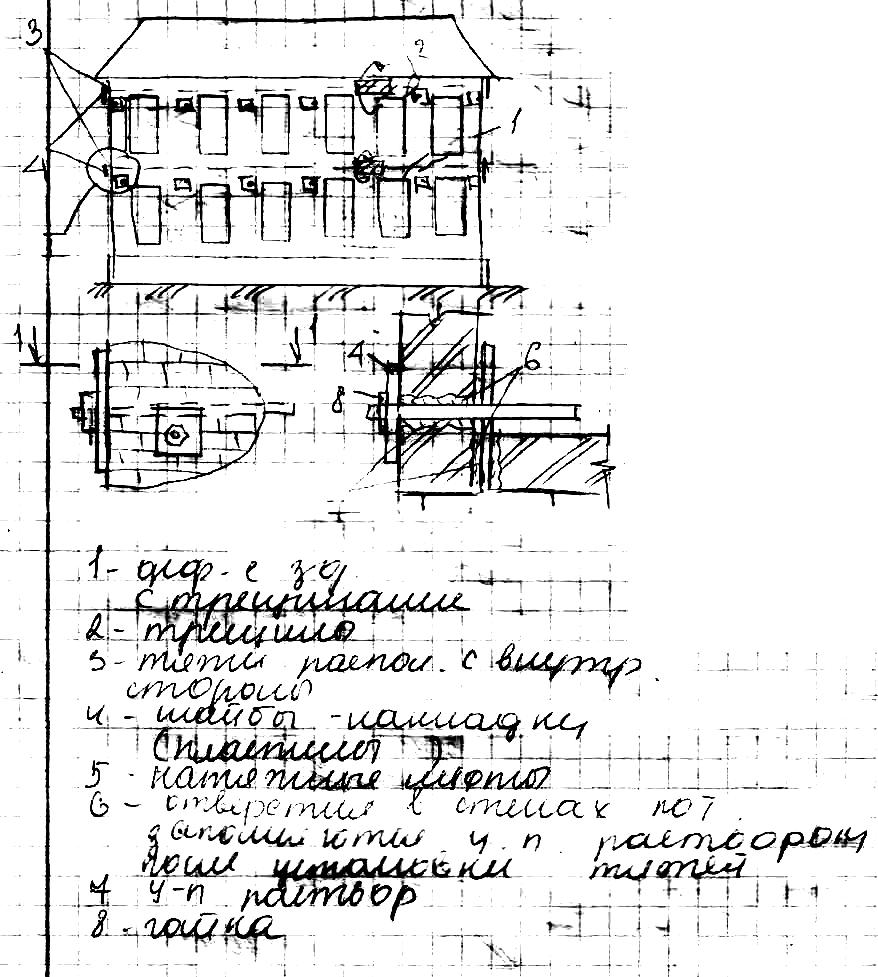 3
2
1
4
1
1
4
6
8
1- деф-е зд
с трещинами
2- трещины
3- тяжи распол. с внутр
стороны
4 - шайбы - накладки
(пластины)
5 - натяжные муфты
6 - отверстия в стенах пот
заполняются ц.п. раствором
после установки тяжей
7 ц-п раствор
8 - гайка